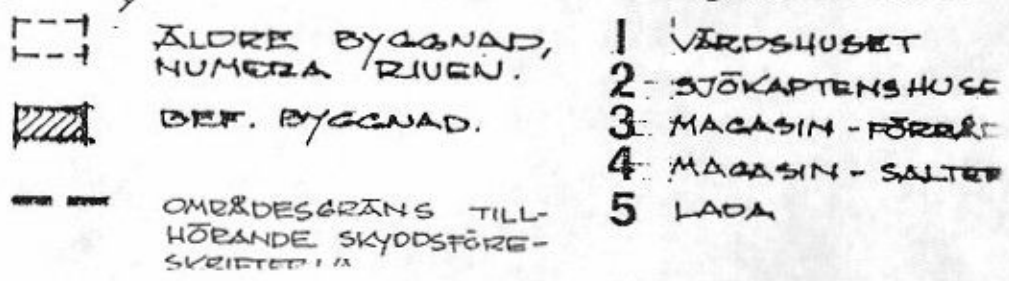 ÄLDRE BYGGNAD,
NUMERA RIVEN.
BEF. BYGGNAD.
OMRÅDESGRÄNS TILL-
HÖRANDE SKYDDSFÖRE-
1 VÄRDSHUSET
2 SJÖKAPTENSHUSE
3 MAGASIN - FÖRRÅD
4 MAGASIN - SALTER
5 LADA